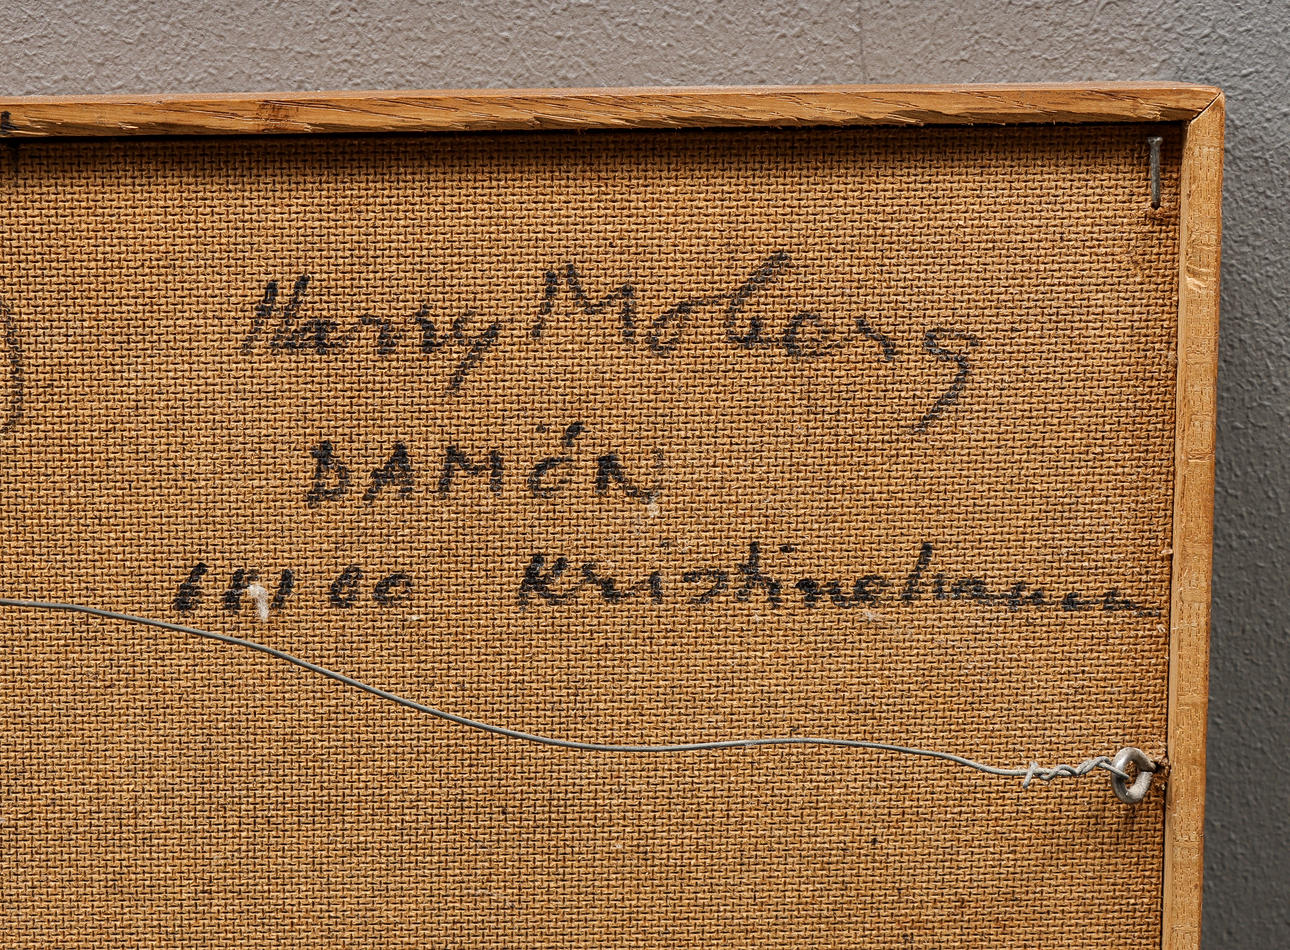 Harry Moberg
DAMÖN
Kristinehamn